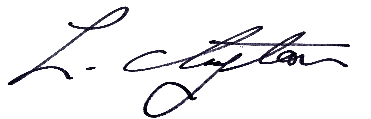 L. Clayton